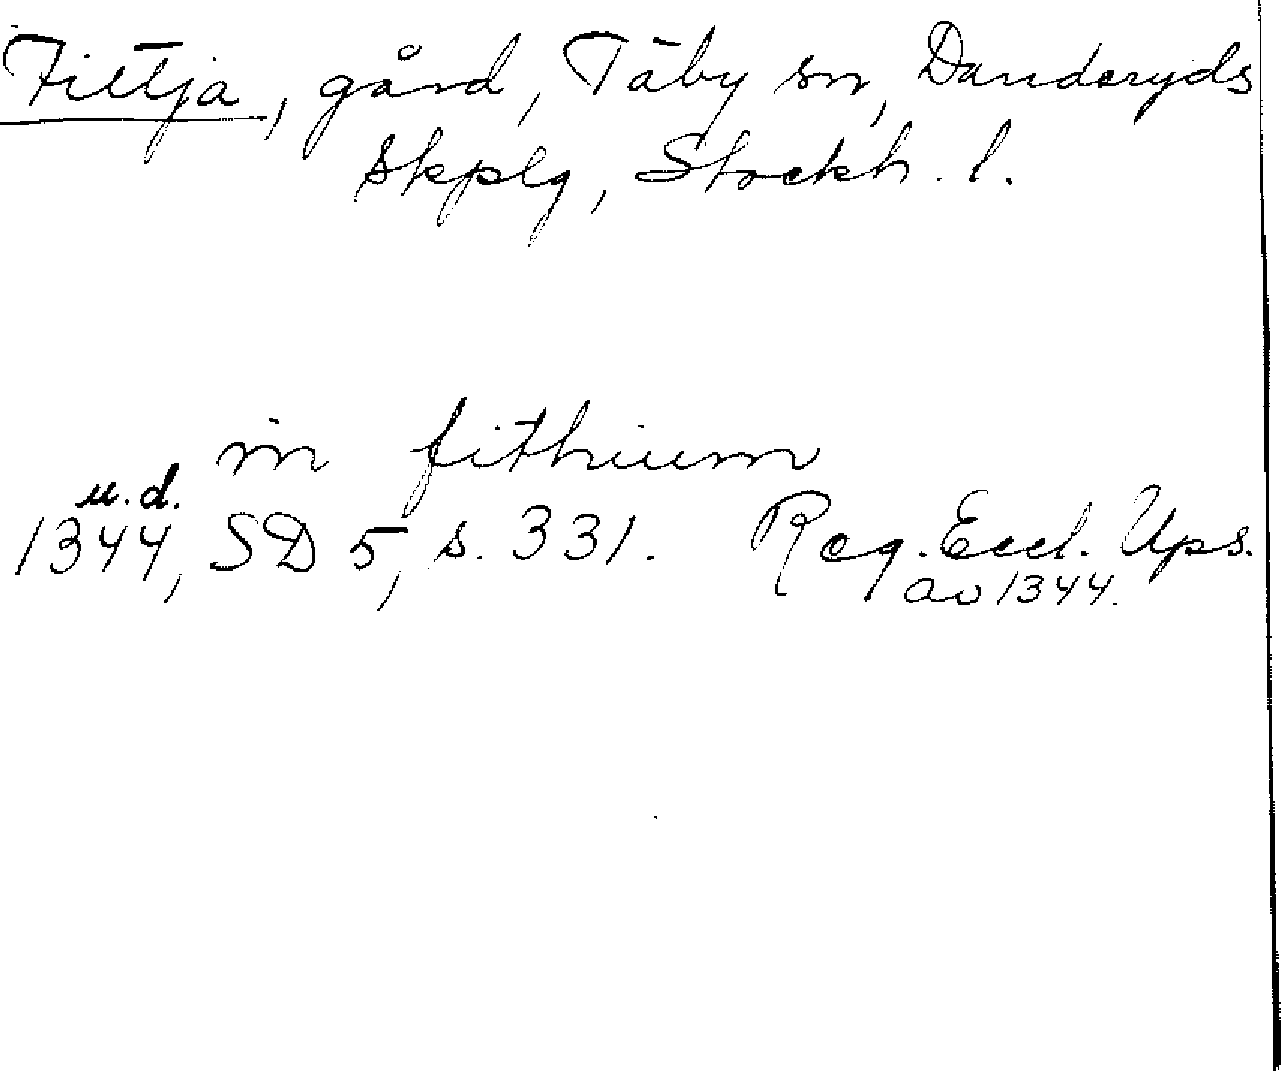 Fittja, gård, Täby sn, Danderyds
Skplg, Stockh. l.
in fithium
u.d.
1344, SD 5, s. 331. Reg. Eccl. Ups.
av 1344.